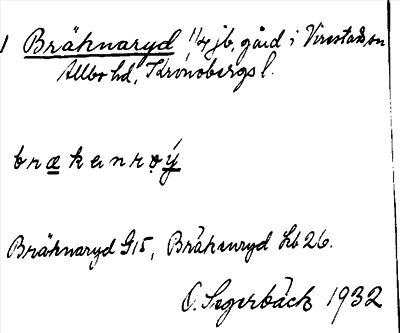 1 Bräknaryd 1/4 jb, gård i Virestads sn
Allbo hd, Kronobergs l.
brækanrọẏ
Bräknaryd G15, Bräkenryd Lb 26.
O. Segerbäck 1932